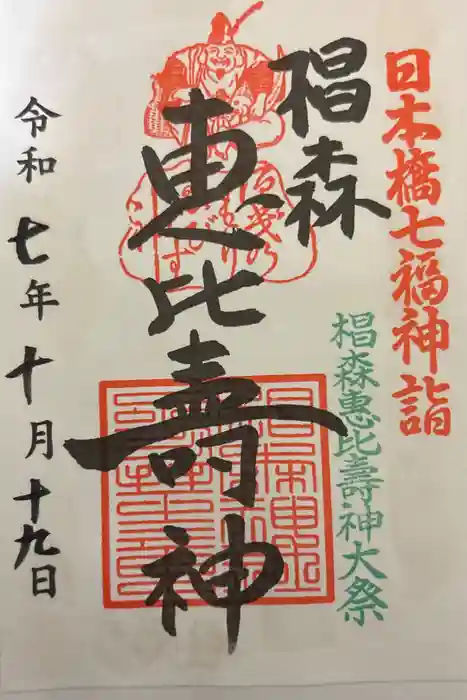 日本橋七福神詣
椙森惠比壽神大祭
椙森
恵比壽神
令和七年十月十九日